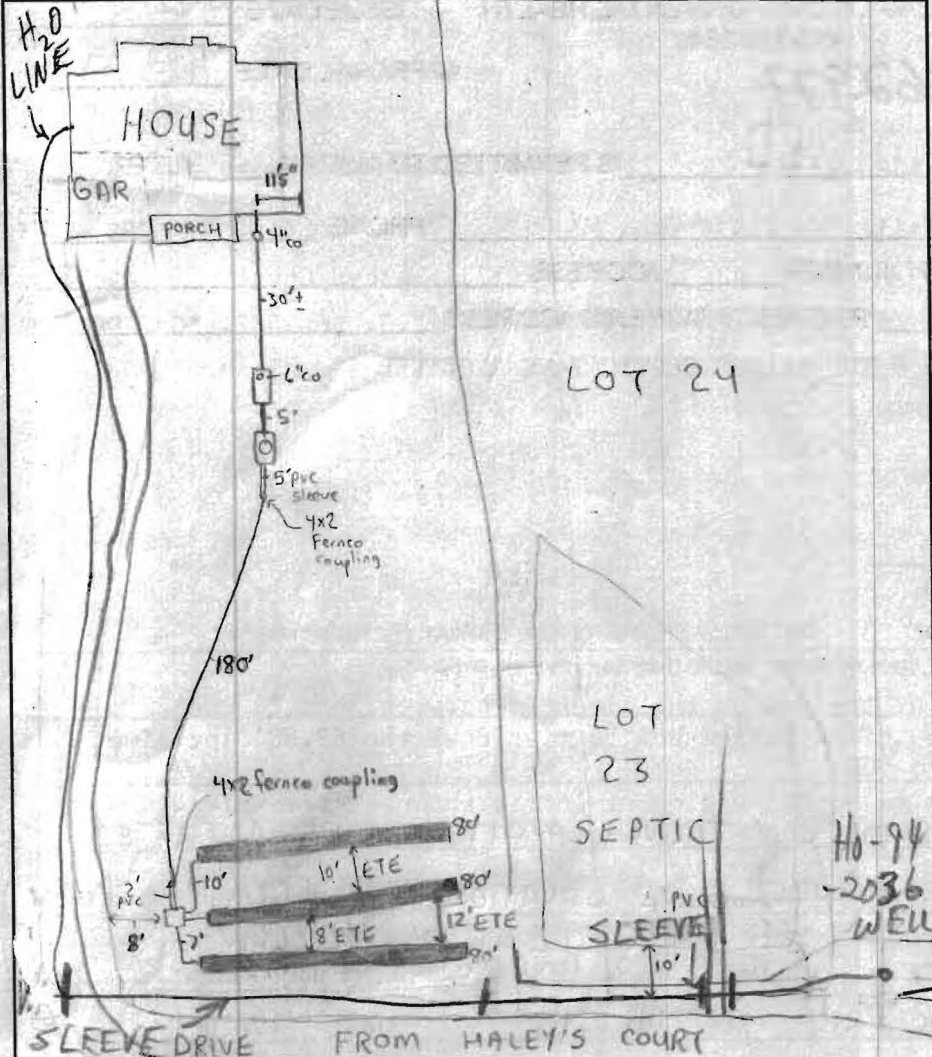 H2O
LINE
HOUSE
GAR
11'5"
PORCH
4"co
30'±
6"co
5'
5'pvc
sleeve
4x2
Fernco
coupling
LOT 24
180'
LOT
23
SEPTIC
4x2 fernco coupling
80'
10'
10' ETE
2'
pvc
80'
8'
7'
8' ETE
12' ETE
80'
PVC
SLEEVE
10'
Ho-94
-2036
WELL
SLEEVE DRIVE FROM HALEY'S COURT